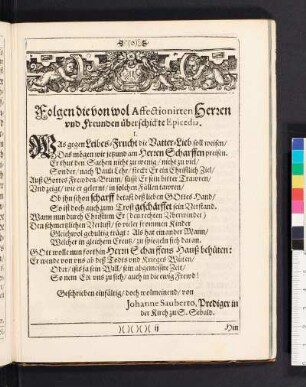 Folgen die von wol Affectionirten Herren
vnd Freunden überschickte Epicedia.
I.
WAs gegen Leibes-Frucht die Vatter-Lieb soll weisen/
Das mögen wir jetzund am Herren Scharffen preisen.
Er thut den Sachen nicht zu wenig/ nicht zu viel/
Sonder/ nach Pauli Lehr/ steckt Er ein Christlich Ziel/
Auß Gottes Frewden-Brunn/ süßt Er sein bitter Trawren/
Vnd zeigt/ wie er gelernt/ in solchen Fällen tauren/
Ob ihn schon scharff betast deß lieben Gottes Hand/
So ist doch auch zum Trost geschärffet sein Verstand.
Wann nun durch Christum Er (den rechten Vberwinder)
Den schmertzlichen Verlust/ so vieler frommen Kinder
Gleichwol gedultig trägt: Als hat ein ander Mann/
Welcher in gleichem Creutz/ zu spiegeln sich daran.
GOtt wolle nun forthin Herrn Scharffens Hauß behüten:
Er wende von uns ab deß Todts und Krieges Wüten/
Oder/ ists ja sein Will/ sein abgemeßne Zeit/
So nem Er vns zu sich/ auch in die ewig Frewd!
Geschrieben einfältig/ doch wolmeinend/ von
Johanne Sauberto, Prediger in
der Kirch zu S. Sebald.
)()()()( ij